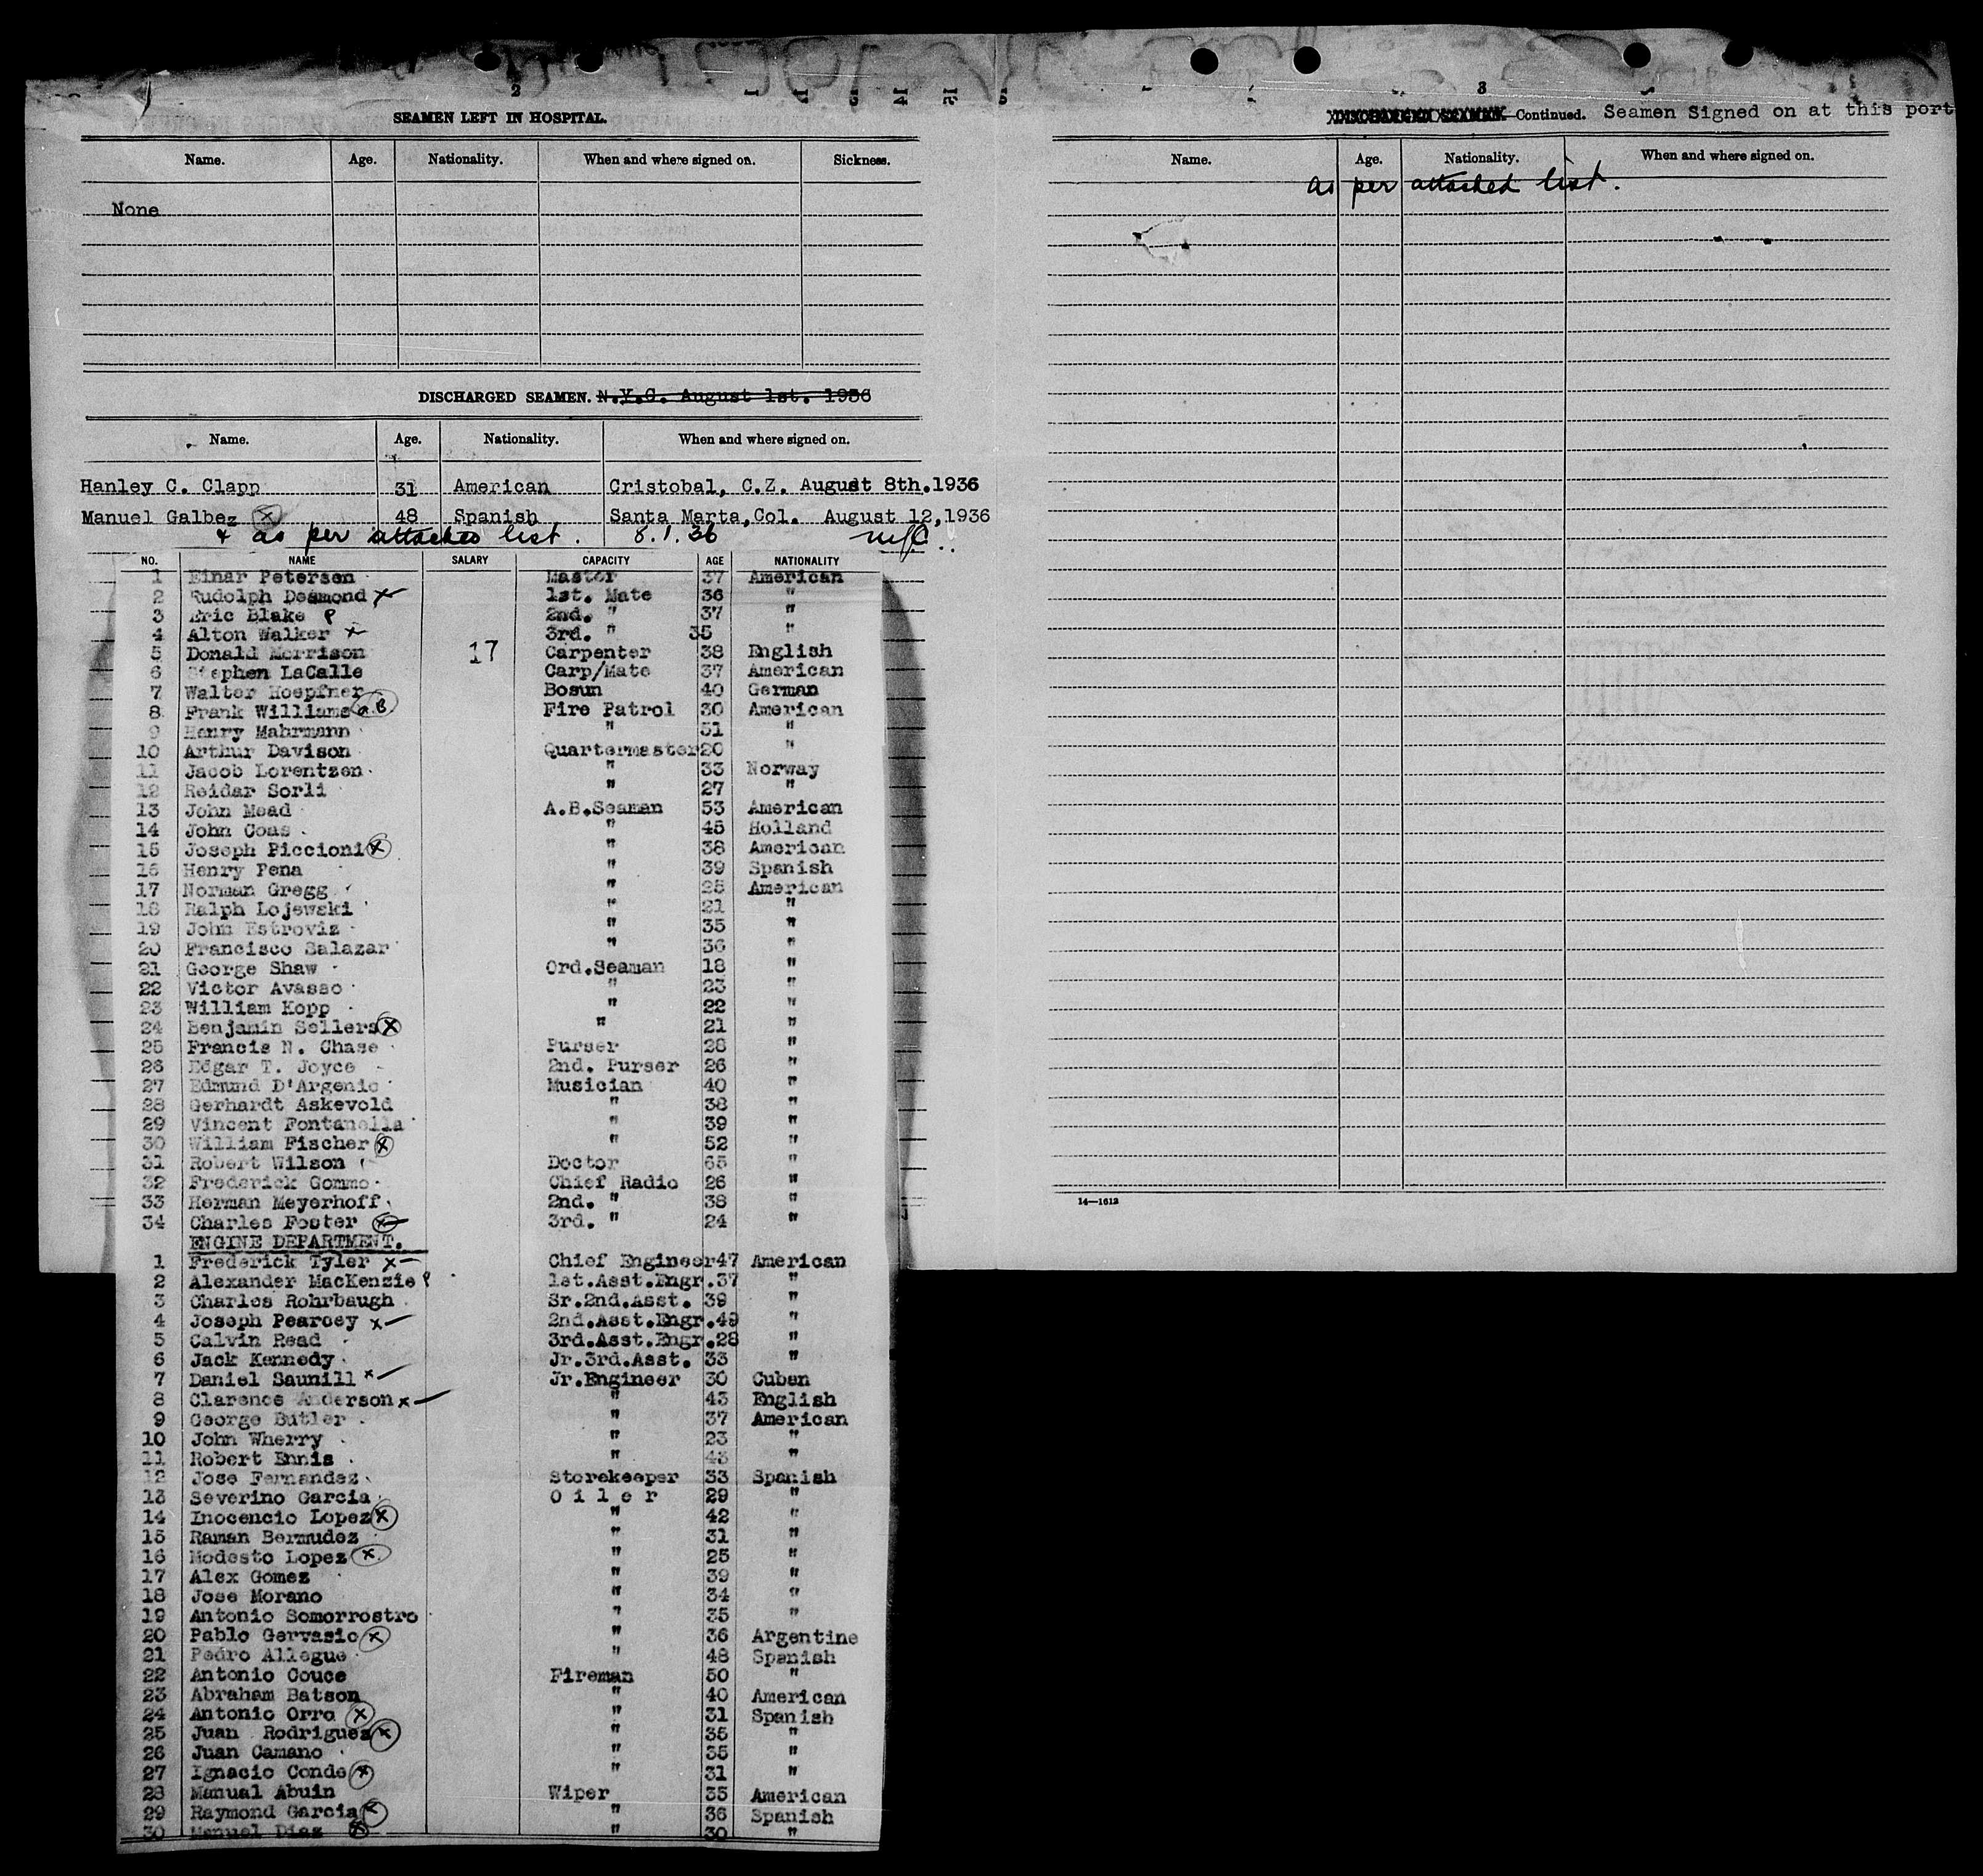 2
SEAMEN LEFT IN HOSPITAL.
Name. Age. Nationality. When and where signed on. Sickness.
None
DISCHARGED SEAMEN. N.Y.C. August 1st. 1936
Name. Age. Nationality. When and where signed on.
Hanley C. Clapp 31 American Cristobal, C.Z. August 8th.1936
Manuel Galbez X 48 Spanish Santa Marta,Col. August 12,1936
+ as per attached list. 8.1.36
NO. NAME SALARY CAPACITY AGE NATIONALITY
1 Einar Petersen Master 37 American
2 Rudolph Desmond x 1st. Mate 36 "
3 Eric Blake P 2nd. " 37 "
4 Alton Walker x 3rd. " 35 "
5 Donald Morrison 17 Carpenter 38 English
6 Stephen LaCalle Carp/Mate 37 American
7 Walter Hoepfner Bosun 40 German
8 Frank Williams a.B. Fire Patrol 30 American
9 Henry Mahrmann " 51 "
10 Arthur Davison Quartermaster 20 "
11 Jacob Lorentzen " 33 Norway
12 Reidar Sorli " 27 "
13 John Mead A.B.Seaman 53 American
14 John Coas " 45 Holland
15 Joseph Piccioni X " 38 American
16 Henry Pena " 39 Spanish
17 Norman Gregg " 25 American
18 Ralph Lojewski " 21 "
19 John Estroviz " 35 "
20 Francisco Salazar " 36 "
21 George Shaw Ord.Seaman 18 "
22 Victor Avasso " 23 "
23 William Kopp " 22 "
24 Benjamin Sellers X " 21 "
25 Francis N. Chase Purser 28 "
26 Edgar T. Joyce 2nd. Purser 26 "
27 Edmund D'Argenio Musician 40 "
28 Gerhardt Askevold " 38 "
29 Vincent Fontanella " 39 "
30 William Fischer X " 52 "
31 Robert Wilson Doctor 65 "
32 Frederick Gommo Chief Radio 26 "
33 Herman Meyerhoff 2nd. " 38 "
34 Charles Foster X 3rd. " 24 "
ENGINE DEPARTMENT.
1 Frederick Tyler x Chief Engineer 47 American
2 Alexander MacKenzie P 1st.Asst.Engr. 37 "
3 Charles Rohrbaugh Sr.2nd.Asst. 39 "
4 Joseph Pearcey x 2nd.Asst.Engr. 49 "
5 Calvin Read 3rd.Asst.Engr. 28 "
6 Jack Kennedy Jr.3rd.Asst. 33 "
7 Daniel Saunill x Jr.Engineer 30 Cuban
8 Clarence Anderson x " 43 English
9 George Butler " 37 American
10 John Wherry " 23 "
11 Robert Ennis " 43 "
12 Jose Fernandez Storekeeper 33 Spanish
13 Severino Garcia O i l e r 29 "
14 Inocencio Lopez X " 42 "
15 Raman Bermudez " 31 "
16 Modesto Lopez X " 25 "
17 Alex Gomez " 39 "
18 Jose Morano " 34 "
19 Antonio Somorrostro " 35 "
20 Pablo Gervasio X " 36 Argentine
21 Pedro Allegue " 48 Spanish
22 Antonio Couce Fireman 50 "
23 Abraham Batson " 40 American
24 Antonio Orro X " 31 Spanish
25 Juan Rodriguez X " 35 "
26 Juan Camano " 35 "
27 Ignacio Conde X " 31 "
28 Manual Abuin Wiper 35 American
29 Raymond Garcia X " 36 Spanish
30 Manuel Diaz X " 30 "
3
DISCHARGED SEAMEN. Continued. Seamen Signed on at this port
Name. Age. Nationality. When and where signed on.
as per attached list.
14—1612